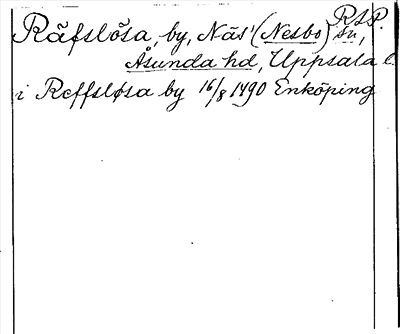 R.S.P.
Räfslösa, by, Näs' (Nesbo) sn,
Åsunda hd, Uppsala l.
i Reffsløsa by 16/8 1490 Enköping